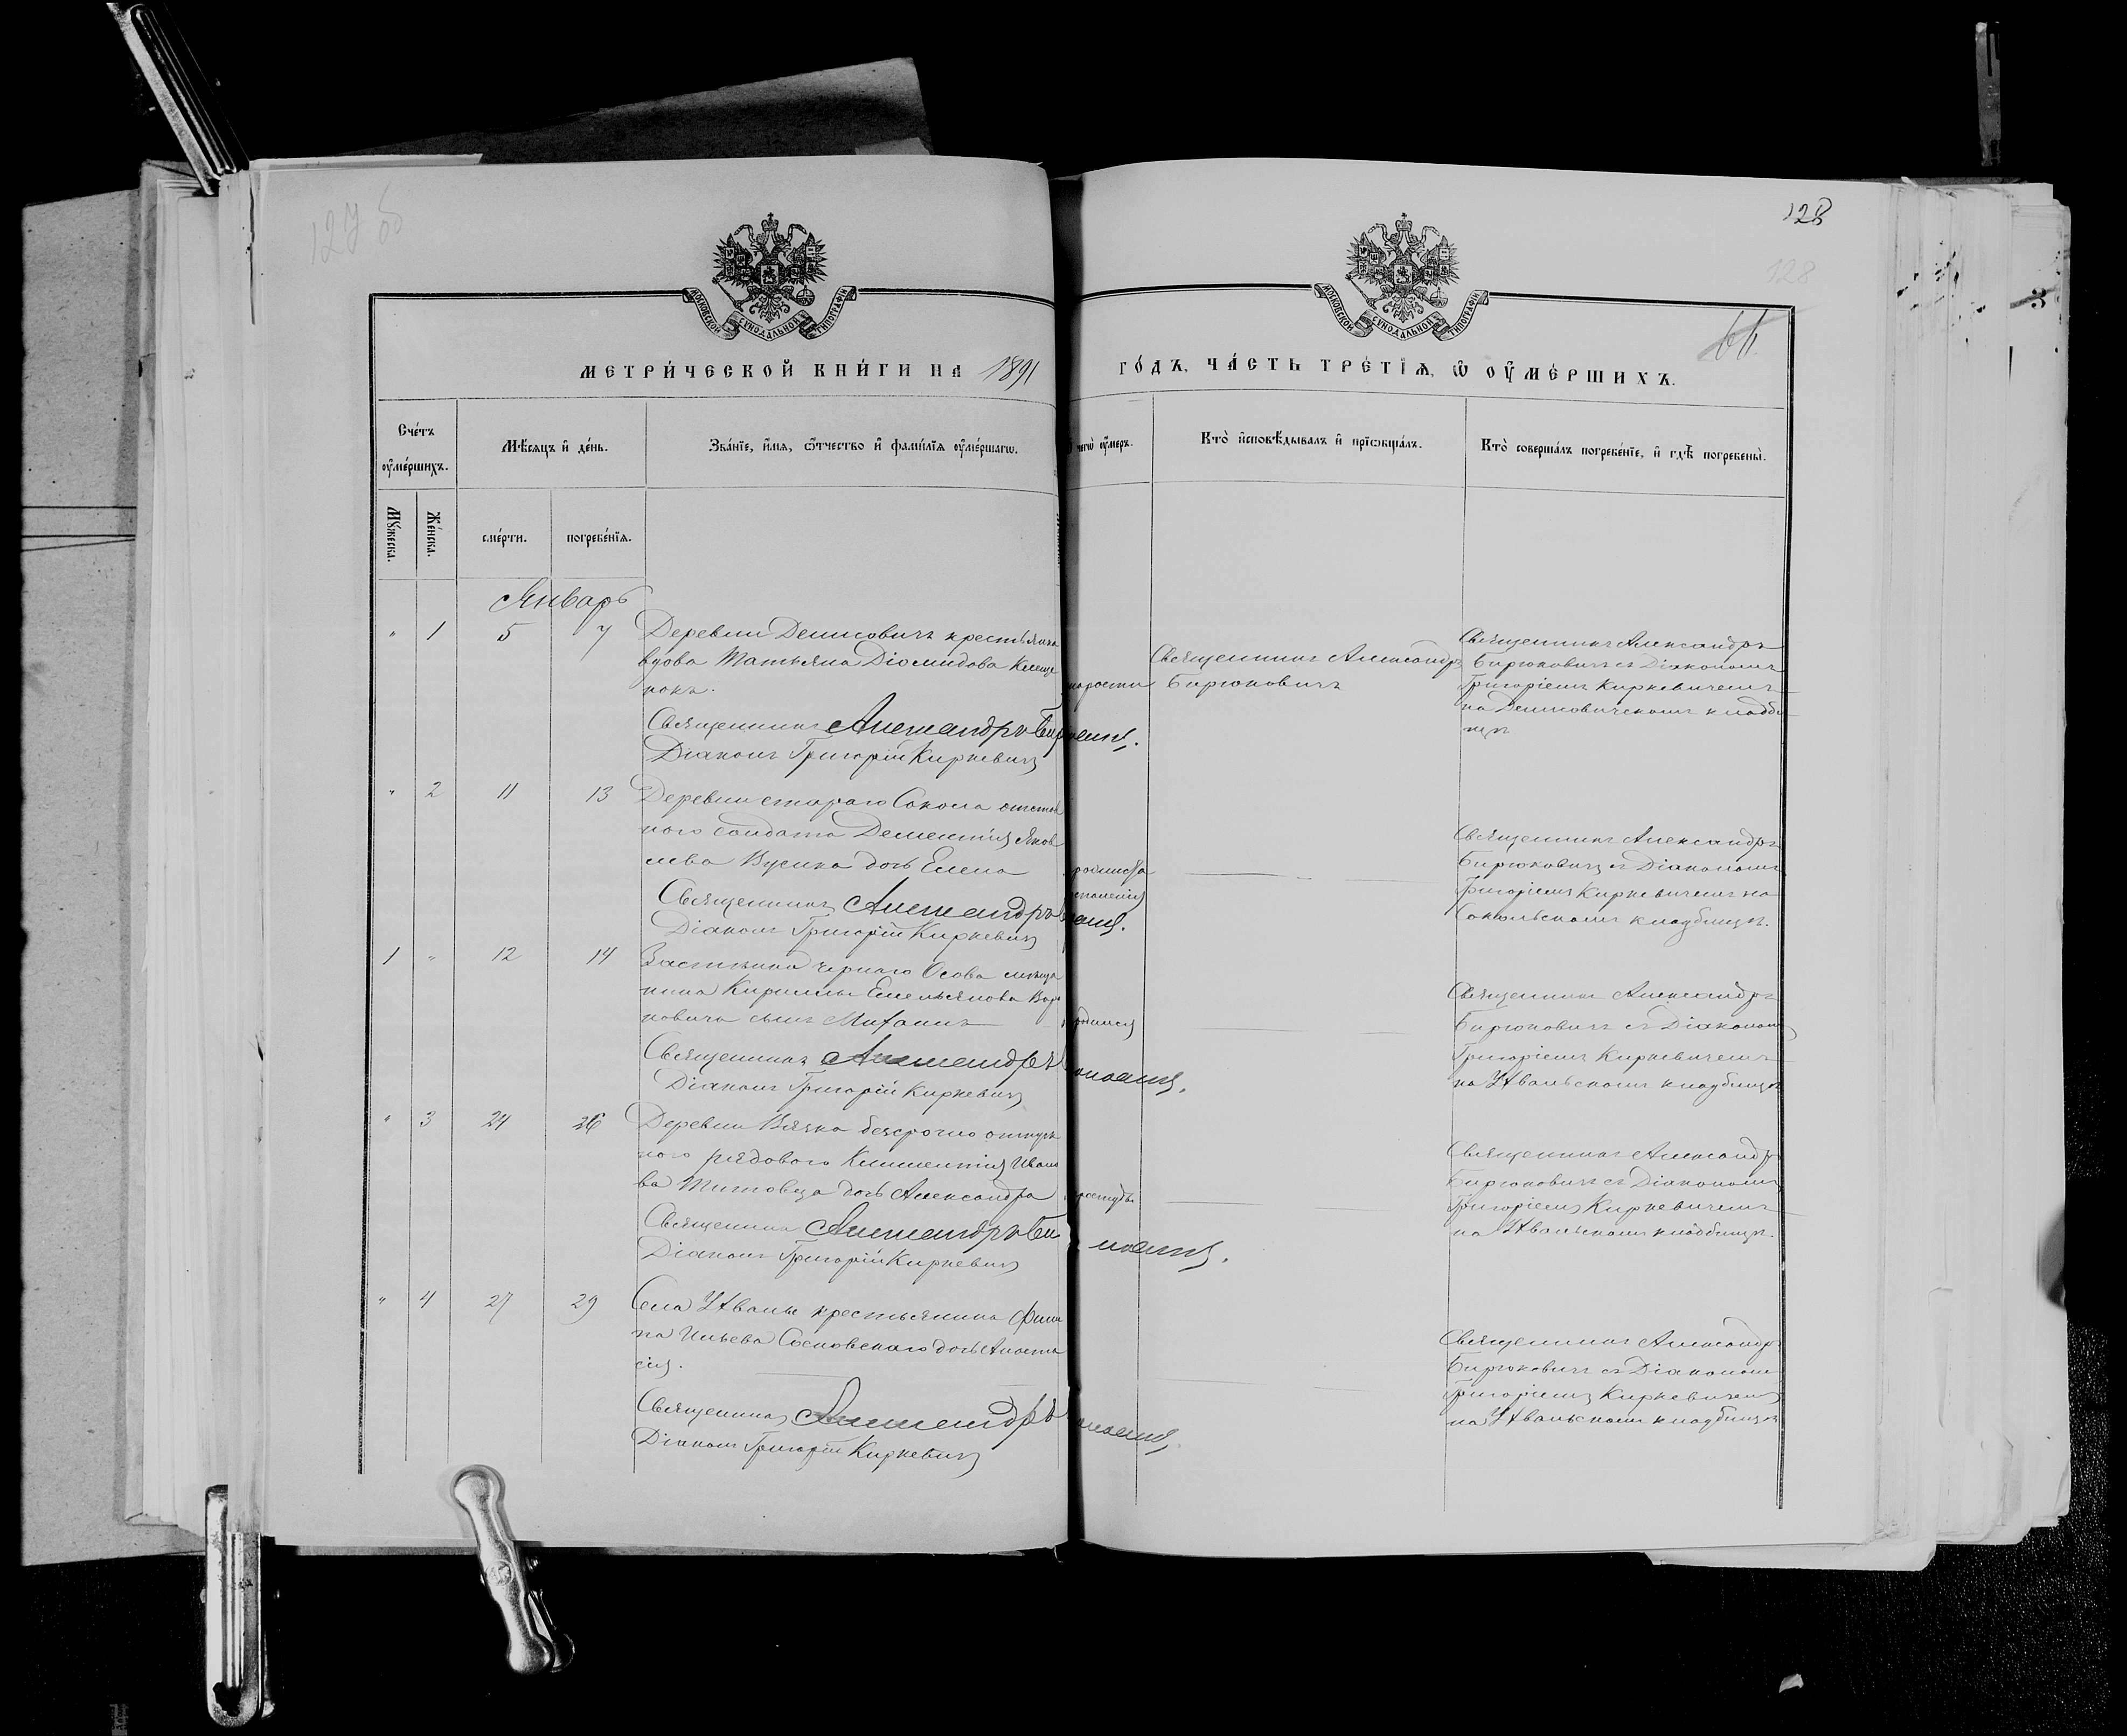 127 об
128
128
МОСКОВСКОЙ СУНОДАЛЬНОЙ ТИПОГРАФІИ
МОСКОВСКОЙ СУНОДАЛЬНОЙ ТИПОГРАФІИ
МЕТРИ́ЧЕСКОЙ КНИ́ГИ НА 1891
ГО́ДЪ, ЧА́СТЬ ТРЕ́ТІѦ, Ѽ ОУ҆МЕ́РШИХЪ.
Сче́тъ
оу҆ме́ршихъ.
Мѣ́сяцъ и҆ де́нь.
Зва́нїе, и҆́мя, ѻ҆́тчество и҆ фами́лїя оу҆ме́ршагѡ.
чегѡ̀ оу҆́меръ.
Кто̀ и҆сповѣ́дывалъ и҆ прїѡбща́лъ.
Кто̀ соверша́лъ погребе́нїе, и҆ гдѣ̀ погребены̀.
Мꙋ́жеска.
Же́нска.
сме́рти.
погребе́нїѧ.
Январь
" 1 5 7 Деревни Денисовичъ крестьянка
вдова Татьяна Діомидова Клеще
нокъ.
Священникъ Александръ Бирюковичъ.
Діаконъ Григорій Киркевичъ
старости
Священникъ Александръ
Бирюковичъ
Священникъ Александръ
Бирюковичъ съ Діакономъ
Григоріемъ Киркевичемъ
на Денисовичскомъ кладби
щѣ
" 2 11 13 Деревни стараго Сокола отстав
ного солдата Дементія Яков
лева дочь Елена
Священникъ Александръ
Діаконъ Григорій Киркевичъ
Священникъ Александръ
Бирюковичъ съ Діакономъ
Григоріемъ Киркевичемъ на
Сокольскомъ кладбищѣ.
1 " 12 14 Застѣнка чернаго Осова мѣща
нина Кириллы Емельянова
новича сынъ Михаилъ
Священникъ Александръ
Діаконъ Григорій Киркевичъ
родимца
Священникъ Александръ
Бирюковичъ съ Діакономъ
Григоріемъ Киркевичемъ
на кладбищѣ
" 3 24 26 Деревни Вячка безсрочно отпуск
ного рядового Климентія Ивано
ва Титовца дочь Александра
Священникъ Александръ
Діаконъ Григорій Киркевичъ
простуды
Священникъ Александръ
Бирюковичъ съ Діакономъ
Григоріемъ Киркевичемъ
на кладбищѣ.
" 4 27 29 Села крестьянина Филип
па Ильева Сосновскаго дочь Анаста
сія.
Священникъ Александръ
Діаконъ Григорій Киркевичъ
Священникъ Александръ
Бирюковичъ съ Діакономъ
Григоріемъ Киркевичемъ
на кладбищѣ